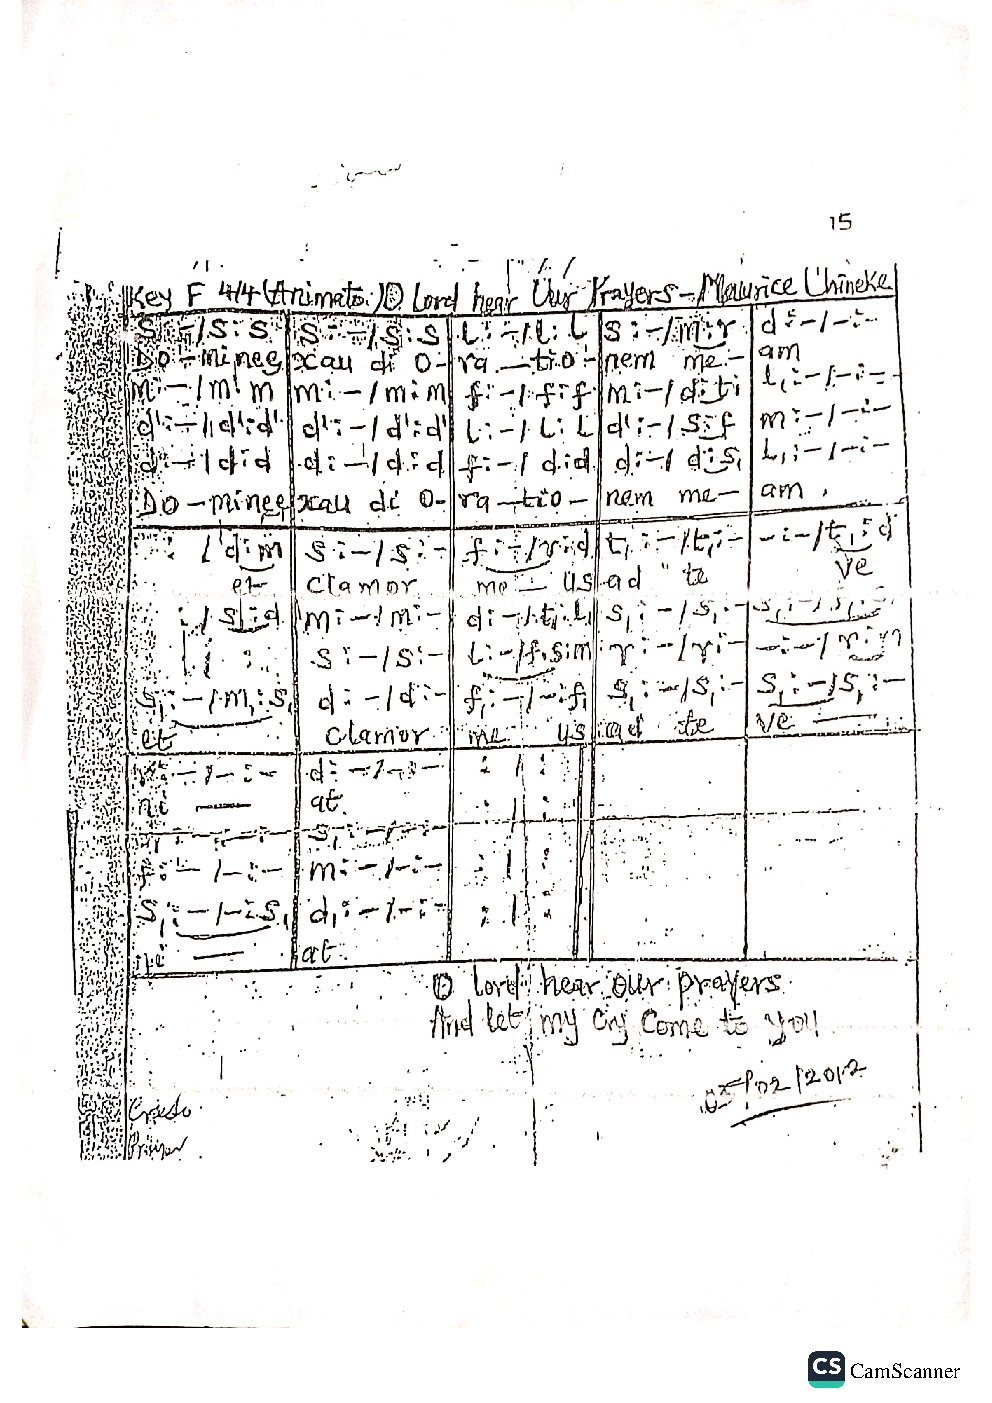 15
Key F 4/4 (Animato.) O Lord hear Our Prayers - Maurice Chineke
s :- / s : s | s :- / s : s | l :- / l : l | s :- / m : r | d :- / - :-
Do - minee | xau di O- | ra - tio - | nem me - | am
m :- / m : m | m :- / m : m | f :- / f : f | m :- / d : ti | l, :- / - :-
d' :- / d' : d' | d' :- / d' : d' | l :- / l : l | d' :- / s : f | m :- / - :-
d :- / d : d | d :- / d : d | f :- / d : d | d :- / d : s, | l, :- / - :-
Do - minee | xau di O- | ra - tio - | nem me - | am .
: / d : m | s :- / s :- | f :- / r : d | t, :- / t, :- | - :- / t, : d
et | Clamor | me - us | ad te | ve
: / s, : d | m :- / m :- | d :- / t, : l, | s, :- / s, :- | s, :- / s, :
: | s :- / s :- | l :- / f . s : m | r :- / r :- | - :- / r : m
s, :- / m, : s, | d :- / d :- | f, :- / - : f, | s, :- / s, :- | s, :- / s, :-
et | Clamor | me us | ad te | ve
- / - :- | d :- / - :- | : / :
ni | at
s, :- / - :-
f :- / - :- | m :- / - :- | : / :
s, :- / - : s, | d, :- / - :- | : / :
at
O lord hear Our prayers
And let my Cry Come to you
/02/2012
Credo
Prayer
CS CamScanner